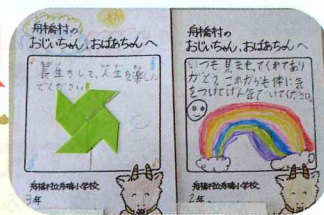 舟橋村の
おじいちゃん、おばあちゃんへ
長生きをして、人生を楽しん
でください
舟橋村立舟橋小学校
3年
舟橋村の
おじいちゃん、おばあちゃんへ
いつも見まもってくれてあり
がとう。これからも体に気
をつけてげん気でいてください。
舟橋村立舟橋小学校
2年